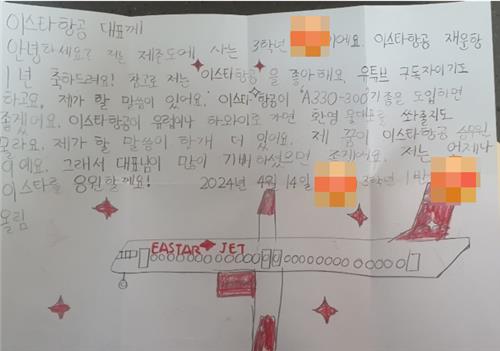 이스타항공 대표께
안녕하세요? 저는 제주도에 사는 3학년 이에요. 이스타항공 재운항
1년 축하드려요! 참고로 저는 이스타항공을 좋아해요. 유튜브 구독자이기도
하고요. 제가 할 말씀이 있어요. 이스타항공이 'A330-300'기종을 도입하면
좋겠어요. 이스타항공이 유럽이나 하와이로 가면 환영 물대포를 쏘아줄지도
몰라요. 제가 할 말씀이 한개 더 있어요. 제 꿈이 이스타항공 승무원
이에요. 그래서 대표님이 많이 기뻐하셨으면 좋겠어요. 저는 언제나
이스타를 응원할께요! 2024년 4월 14일 3학년 1반
올림
EASTAR JET